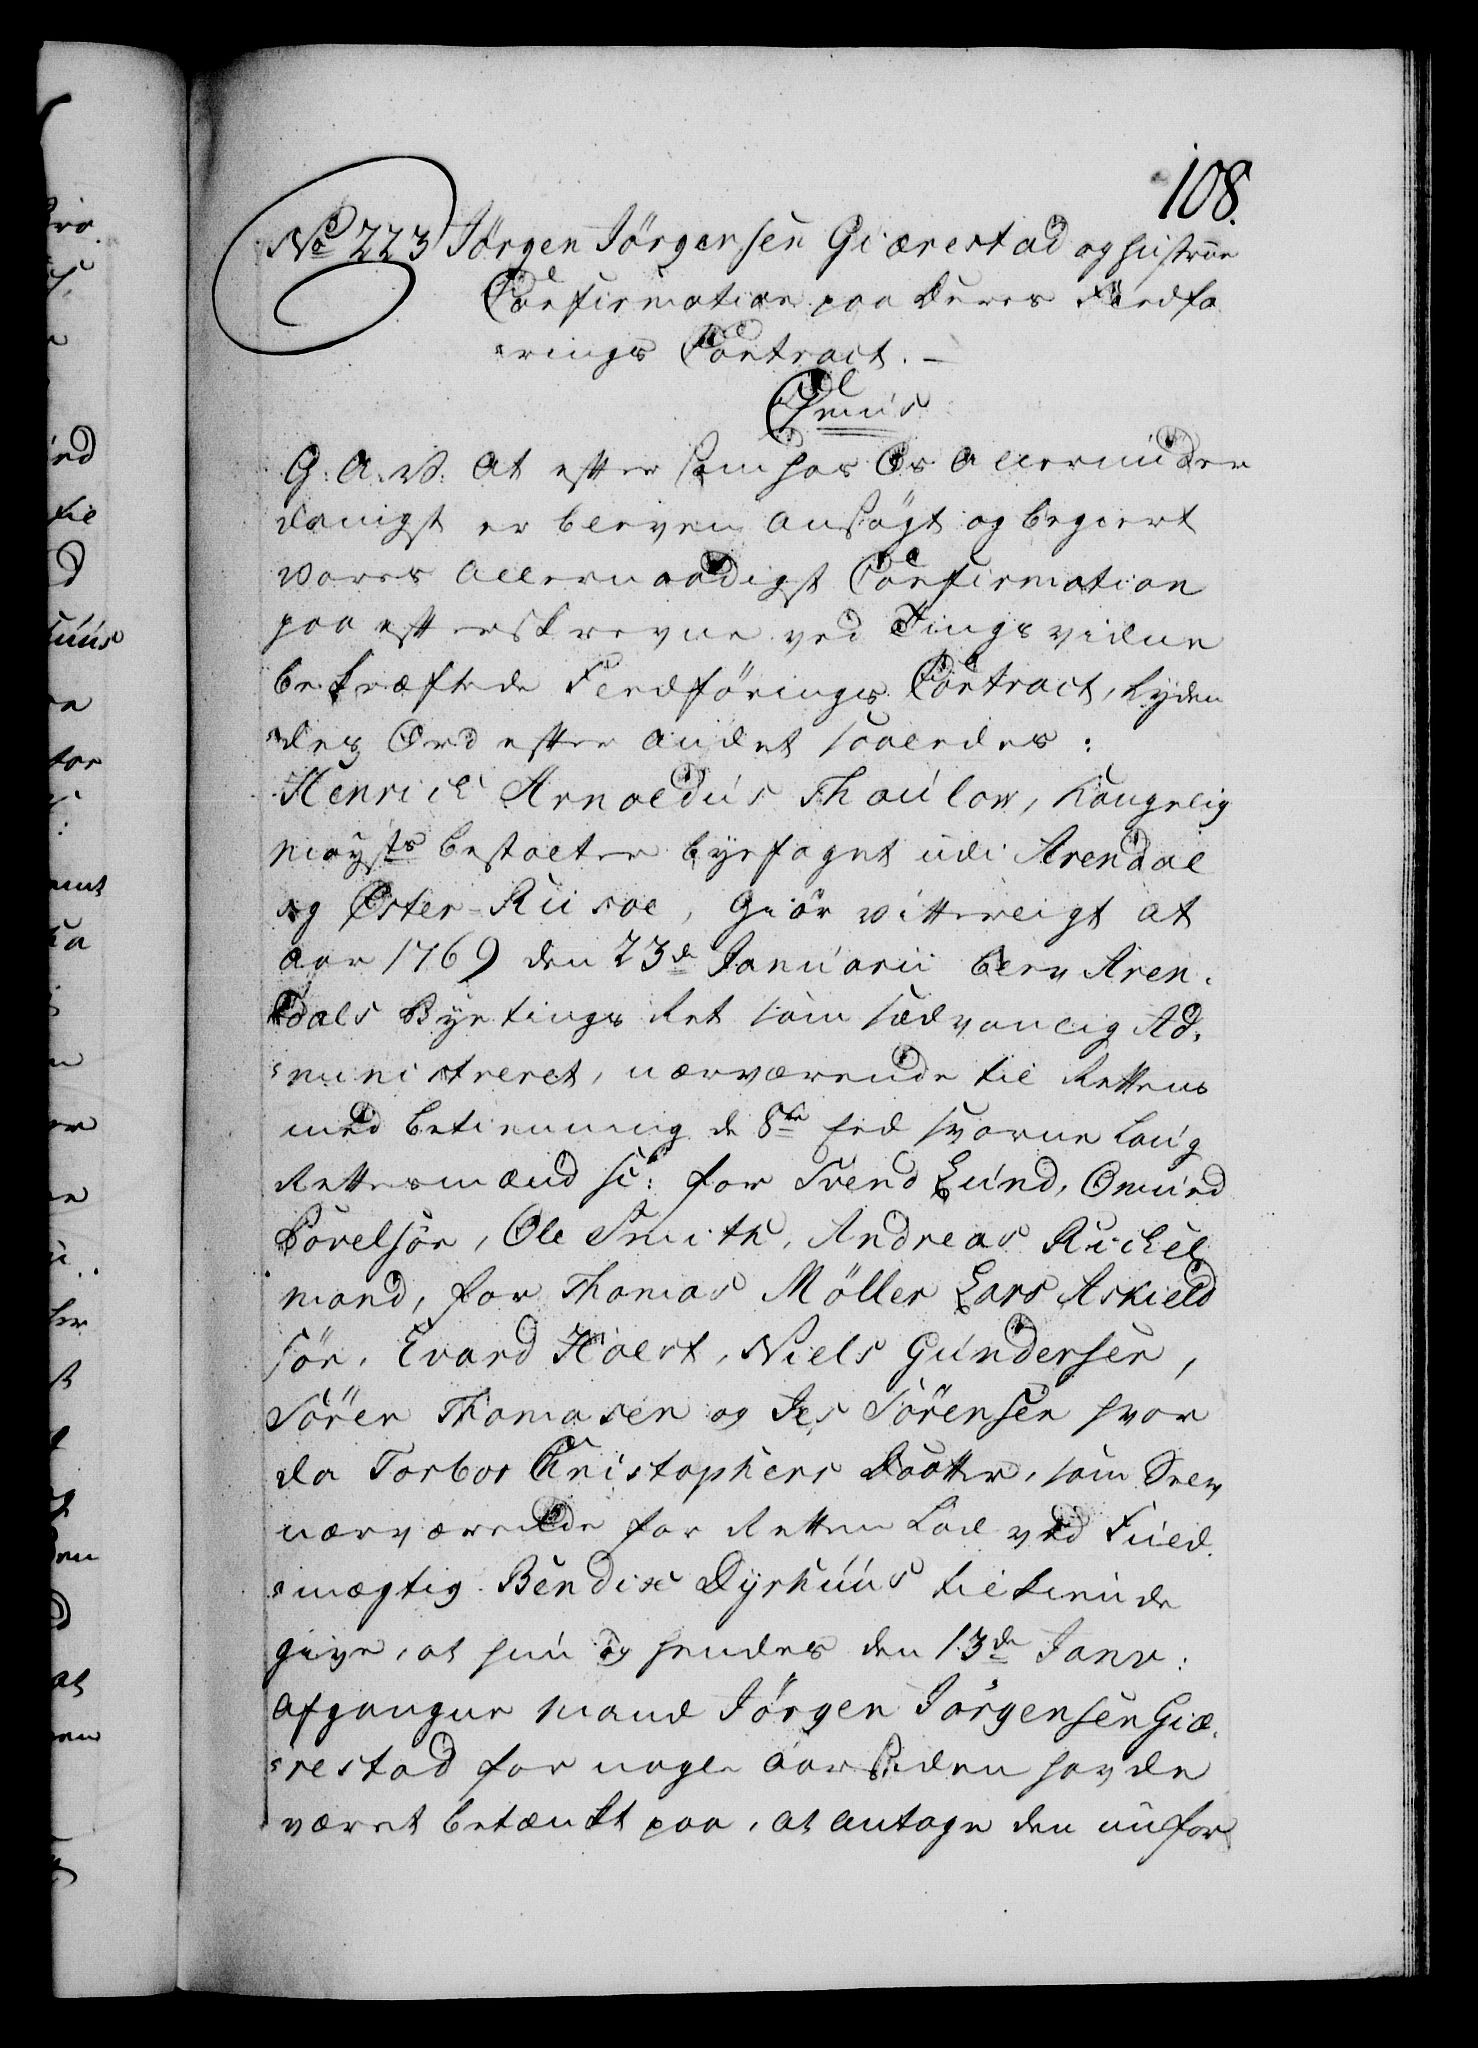 108.
No 223 Jörgen Jörgensen Giærestad og hustrue
Confirmation paa deres Fledfö
rings Contract. –
C7mus
G: A: V: At efter som hos Os Allerunder
danigst er bleven ansögt og begiert
Vores Allernaadigst Confirmation
paa efterskrevne ved Tingsvidne
bekræftede Fledförings Contract, lyden
des Ord efter andet saaledes:
Henrich Arnoldus Thaulow, Kongelig
Mayts bestalter byefoget udi Arendal
og Öster-Riisöe, Giör vitterligt at
Aar 1769 den 23de Januarii blev Aren
dals Byetings Ret som sædvanlig Ad
ministreret, nærværende til Rettens
med betienning de 8te Eed svorne Laug
Rettesmænd sc: for Svend Lund, Omund
Povelsön, Ole Smith, Andreas Richel
mand, for Thomas Möller Lars Askield
sön, Evard Holst, Niels Gundersen,
Sören Thomasen og Jes Sörensen hvor
da Torbor Christophers Daatter, som blev
nærværende for Retten lod ved Fuld
mægtig Bendix Dyrhuus tilkiende
give, at hun og hendes den 13de Janv:
afgangne Mand Jörgen Jörgensen Giæ
restad for nogle Aar siden havde
været betænkt paa, at antage den nu for